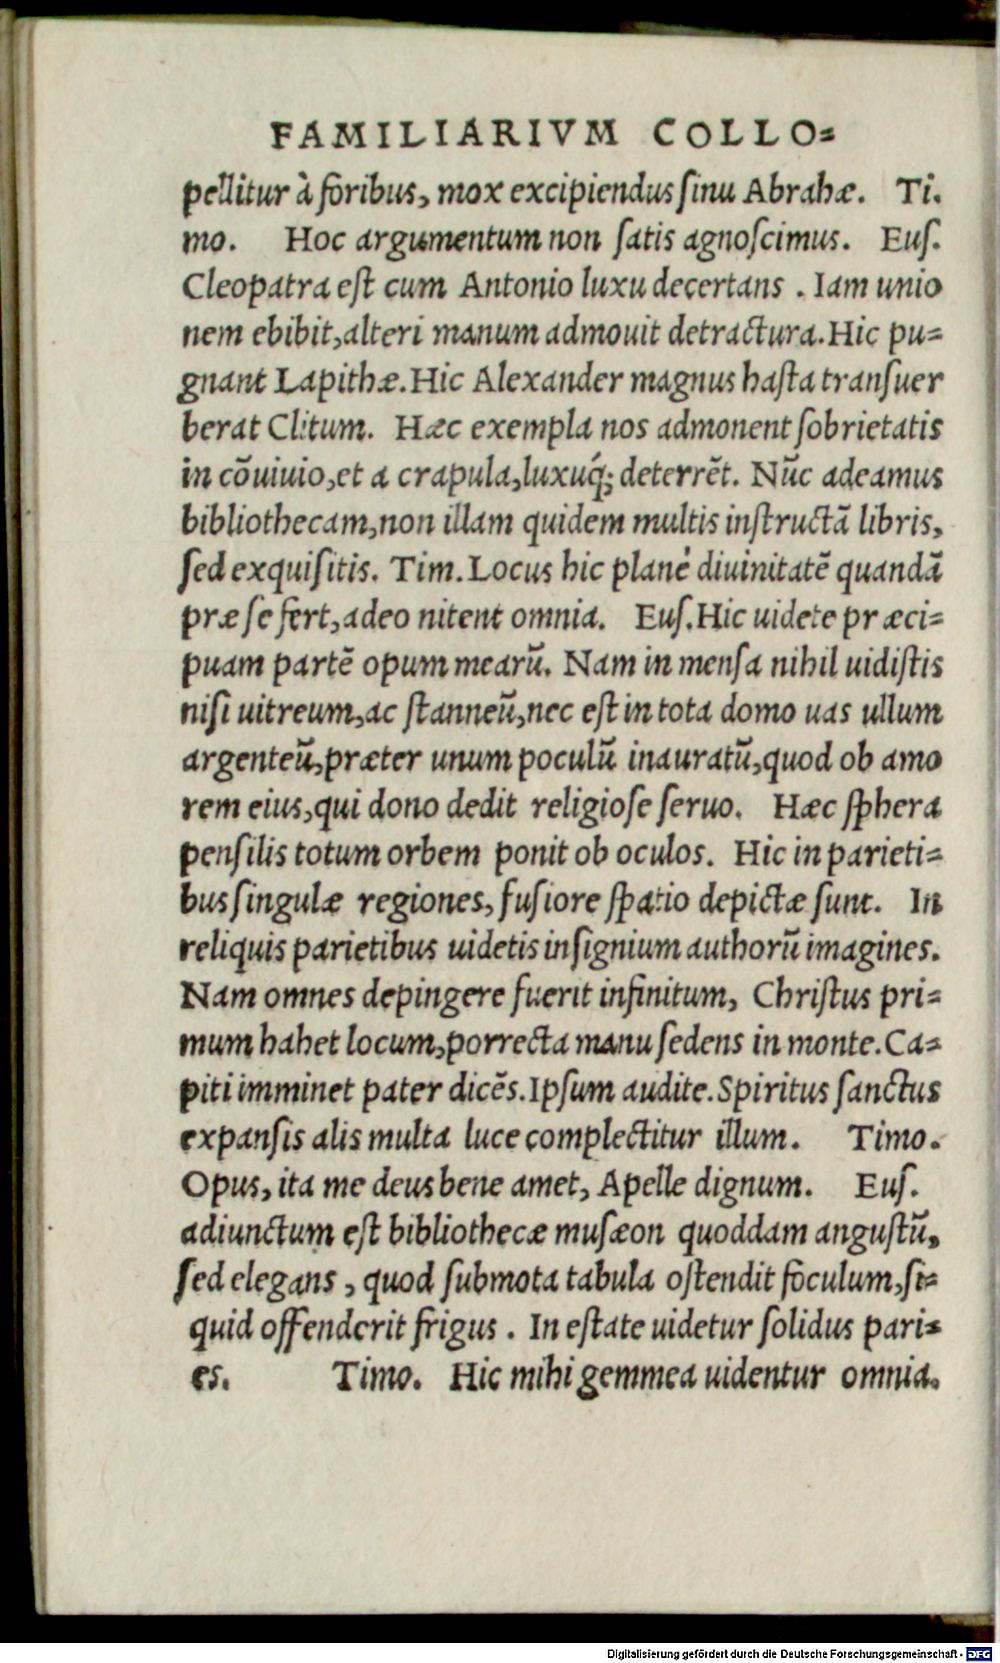 FAMILIARIVM COLLO=
pellitur à foribus, mox excipiendus ſinu Abrahæ. Ti.
mo. Hoc argumentum non ſatis agnoſcimus. Euſ.
Cleopatra eſt cum Antonio luxu decertans . Iam unio
nem ebibit, alteri manum admouit detractura. Hic pu=
gnant Lapithæ. Hic Alexander magnus haſta tranſuer
berat Clitum. Hæc exempla nos admonent ſobrietatis
in cōuiuio, et a crapula, luxuq́; deterrēt. Nūc adeamus
bibliothecam, non illam quidem multis inſtructā libris,
ſed exquiſitis. Tim. Locus hic planè diuinitatē quandā
præ ſe fert, adeo nitent omnia. Euſ. Hic uidete præci=
puam partē opum mearū. Nam in menſa nihil uidiſtis
niſi uitreum, ac ſtanneū, nec eſt in tota domo uas ullum
argenteū, præter unum poculū inauratū, quod ob amo
rem eius, qui dono dedit religioſe ſeruo. Hæc ſphera
penſilis totum orbem ponit ob oculos. Hic in parieti=
bus ſingulæ regiones, fuſiore ſpatio depictæ ſunt. In
reliquis parietibus uidetis inſignium authorū imagines.
Nam omnes depingere fuerit infinitum, Chriſtus pri=
mum hahet locum, porrecta manu ſedens in monte. Ca=
piti imminet pater dicēs. Ipſum audite. Spiritus ſanctus
expanſis alis multa luce complectitur illum. Timo.
Opus, ita me deus bene amet, Apelle dignum. Euſ.
adiunctum eſt bibliothecæ muſæon quoddam anguſtū,
ſed elegans , quod ſubmota tabula oſtendit foculum, ſi=
quid offenderit frigus . In eſtate uidetur ſolidus pari=
es. Timo. Hic mihi gemmea uidentur omnia.
Digitalisierung gefördert durch die Deutsche Forschungsgemeinschaft - DFG